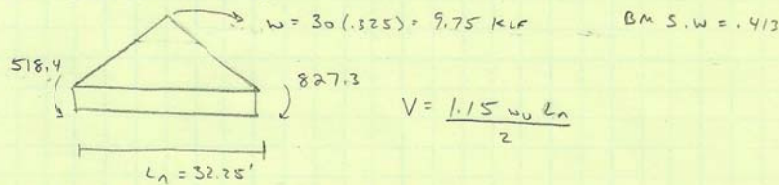 w = 30(.325) = 9.75 KLF
BM S.W = .413
518.4
827.3
V = 1.15 wu Ln / 2
Ln = 32.25'